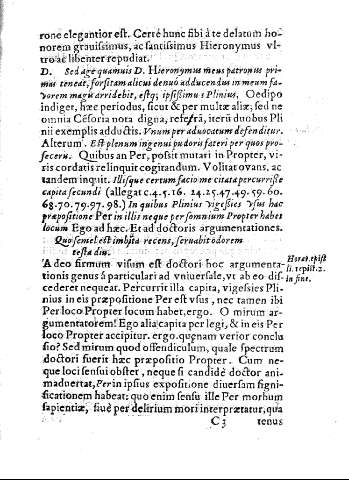 rone elegantior est. Certè hunc sibi à te delatum ho-
norem grauissimus, ac sanctissimus Hieronymus vl-
tro ac libenter repudiat.
D. Sed age quamuis D. Hieronymus meus patronus pri-
mas teneat, forsitam alicui deuò adducendus in meum fa-
vorem magū arridebit, estq; ipsissimus Plinius. Oedipo
indiget, hæc periodus, sicut & per multæ aliæ; sed ne
omnia Cēsoria nota digna, referā, iterū duobus Pli
nii exemplis adductis. Vnum per aduocatum defenditur.
Alterum. Est plenum ingenui pudoris fateri per quos pro-
feceru. Quibus an Per, possit mutari in Propter, vi-
ris cordatis relinquit cogitandum. Volitat ovans, ac
tandem inquit. Illisque certum facio me citata percurrisse
capita secundi (allegat c.4.5.16. 24.25.47.49.59.60.
68.70.79.97.98.) In quibus Plinius vigessies vsus hac
præpositione Per in illis neque per somnium Propter habet
locum Ego ad hæc. Et ad doctoris argumentationes.
Quo semel est imbuta recens, seruabit odorem
testa diu.
Horat. epist
li. 1. epist. 2.
in fine.
A deo firmum visum est doctori hoc argumenta-
tionis genus á particulari ad vniuersale, vt ab eo dis-
cederet nequeat. Percurrit illa capita, vigessies Pli-
nius in eis præpositione Per est vsus, nec tamen ibi
Per loco Propter locum habet, ergo. O mirum ar-
gumentatorem! Ego alia capita per legi, & in eis Per
loco Propter accipitur. ergo. quęnam verior conclu
sio? Sed mirum quod offendiculum, quale spectrum
doctori fuerit hæc præpositio Propter. Cum ne-
que loci sensui obstet, neque si candidè doctor ani-
maduertat, Per in ipsius expositione diuersam signi-
ficationem habeat: quo enim sensu ille Per morbum
sapientiæ, siuè per delirium mori interprætatur, qua
C 3 tenus